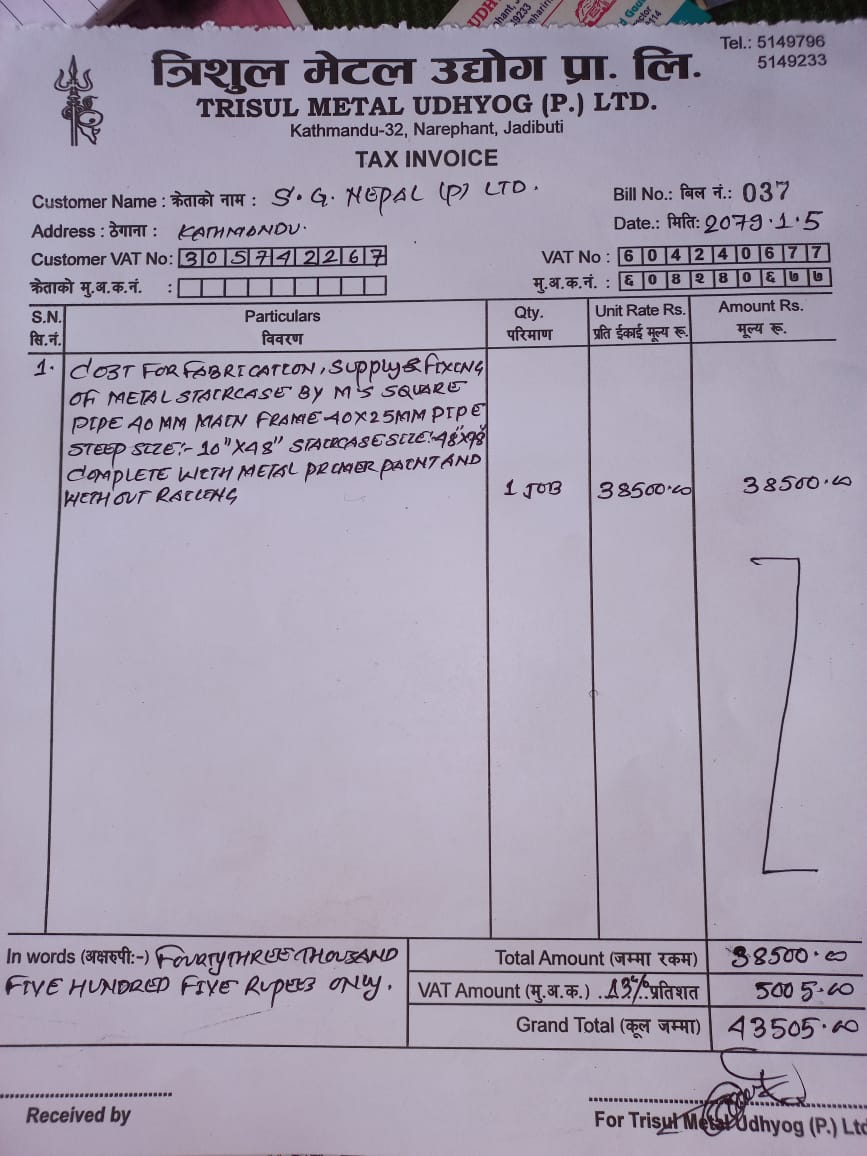 Tel.: 5149796
5149233
त्रिशुल मेटल उद्योग प्रा. लि.
TRISUL METAL UDHYOG (P.) LTD.
Kathmandu-32, Narephant, Jadibuti
TAX INVOICE
Customer Name : क्रेताको नाम : S.G. NEPAL (P) LTD.
Bill No.: बिल नं.: 037
Address : ठेगाना : KATHMANDU.
Date.: मिति: 2079.1.5
Customer VAT No: 305742267
VAT No : 604240677
क्रेताको मु.अ.क.नं. :
मु.अ.क.नं. : ६०४२४०६७७
S.N. Particulars Qty. Unit Rate Rs. Amount Rs.
सि.नं. विवरण परिमाण प्रति ईकाई मूल्य रू. मूल्य रू.
1. COST FOR FABRICATION, Supply & FIXING
OF METAL STAIRCASE BY M'S SQUARE
PIPE 40 MM MAIN FRAME 40X25MM PIPE
STEEP SIZE:- 10"X48" STAIRCASE SIZE:-48"X98"
COMPLETE WITH METAL PRIMER PAINT AND
WITHOUT RAILING
1 JOB 38500.00 38500.00
In words (अक्षरुपी:-) FOURTYTHREE THOUSAND
FIVE HUNDRED FIVE RUPEES ONLY.
Total Amount (जम्मा रकम) 38500.00
VAT Amount (मु.अ.क.) .13%.प्रतिशत 5005.00
Grand Total (कूल जम्मा) 43505.00
Received by
For Trisul Metal Udhyog (P.) Ltd